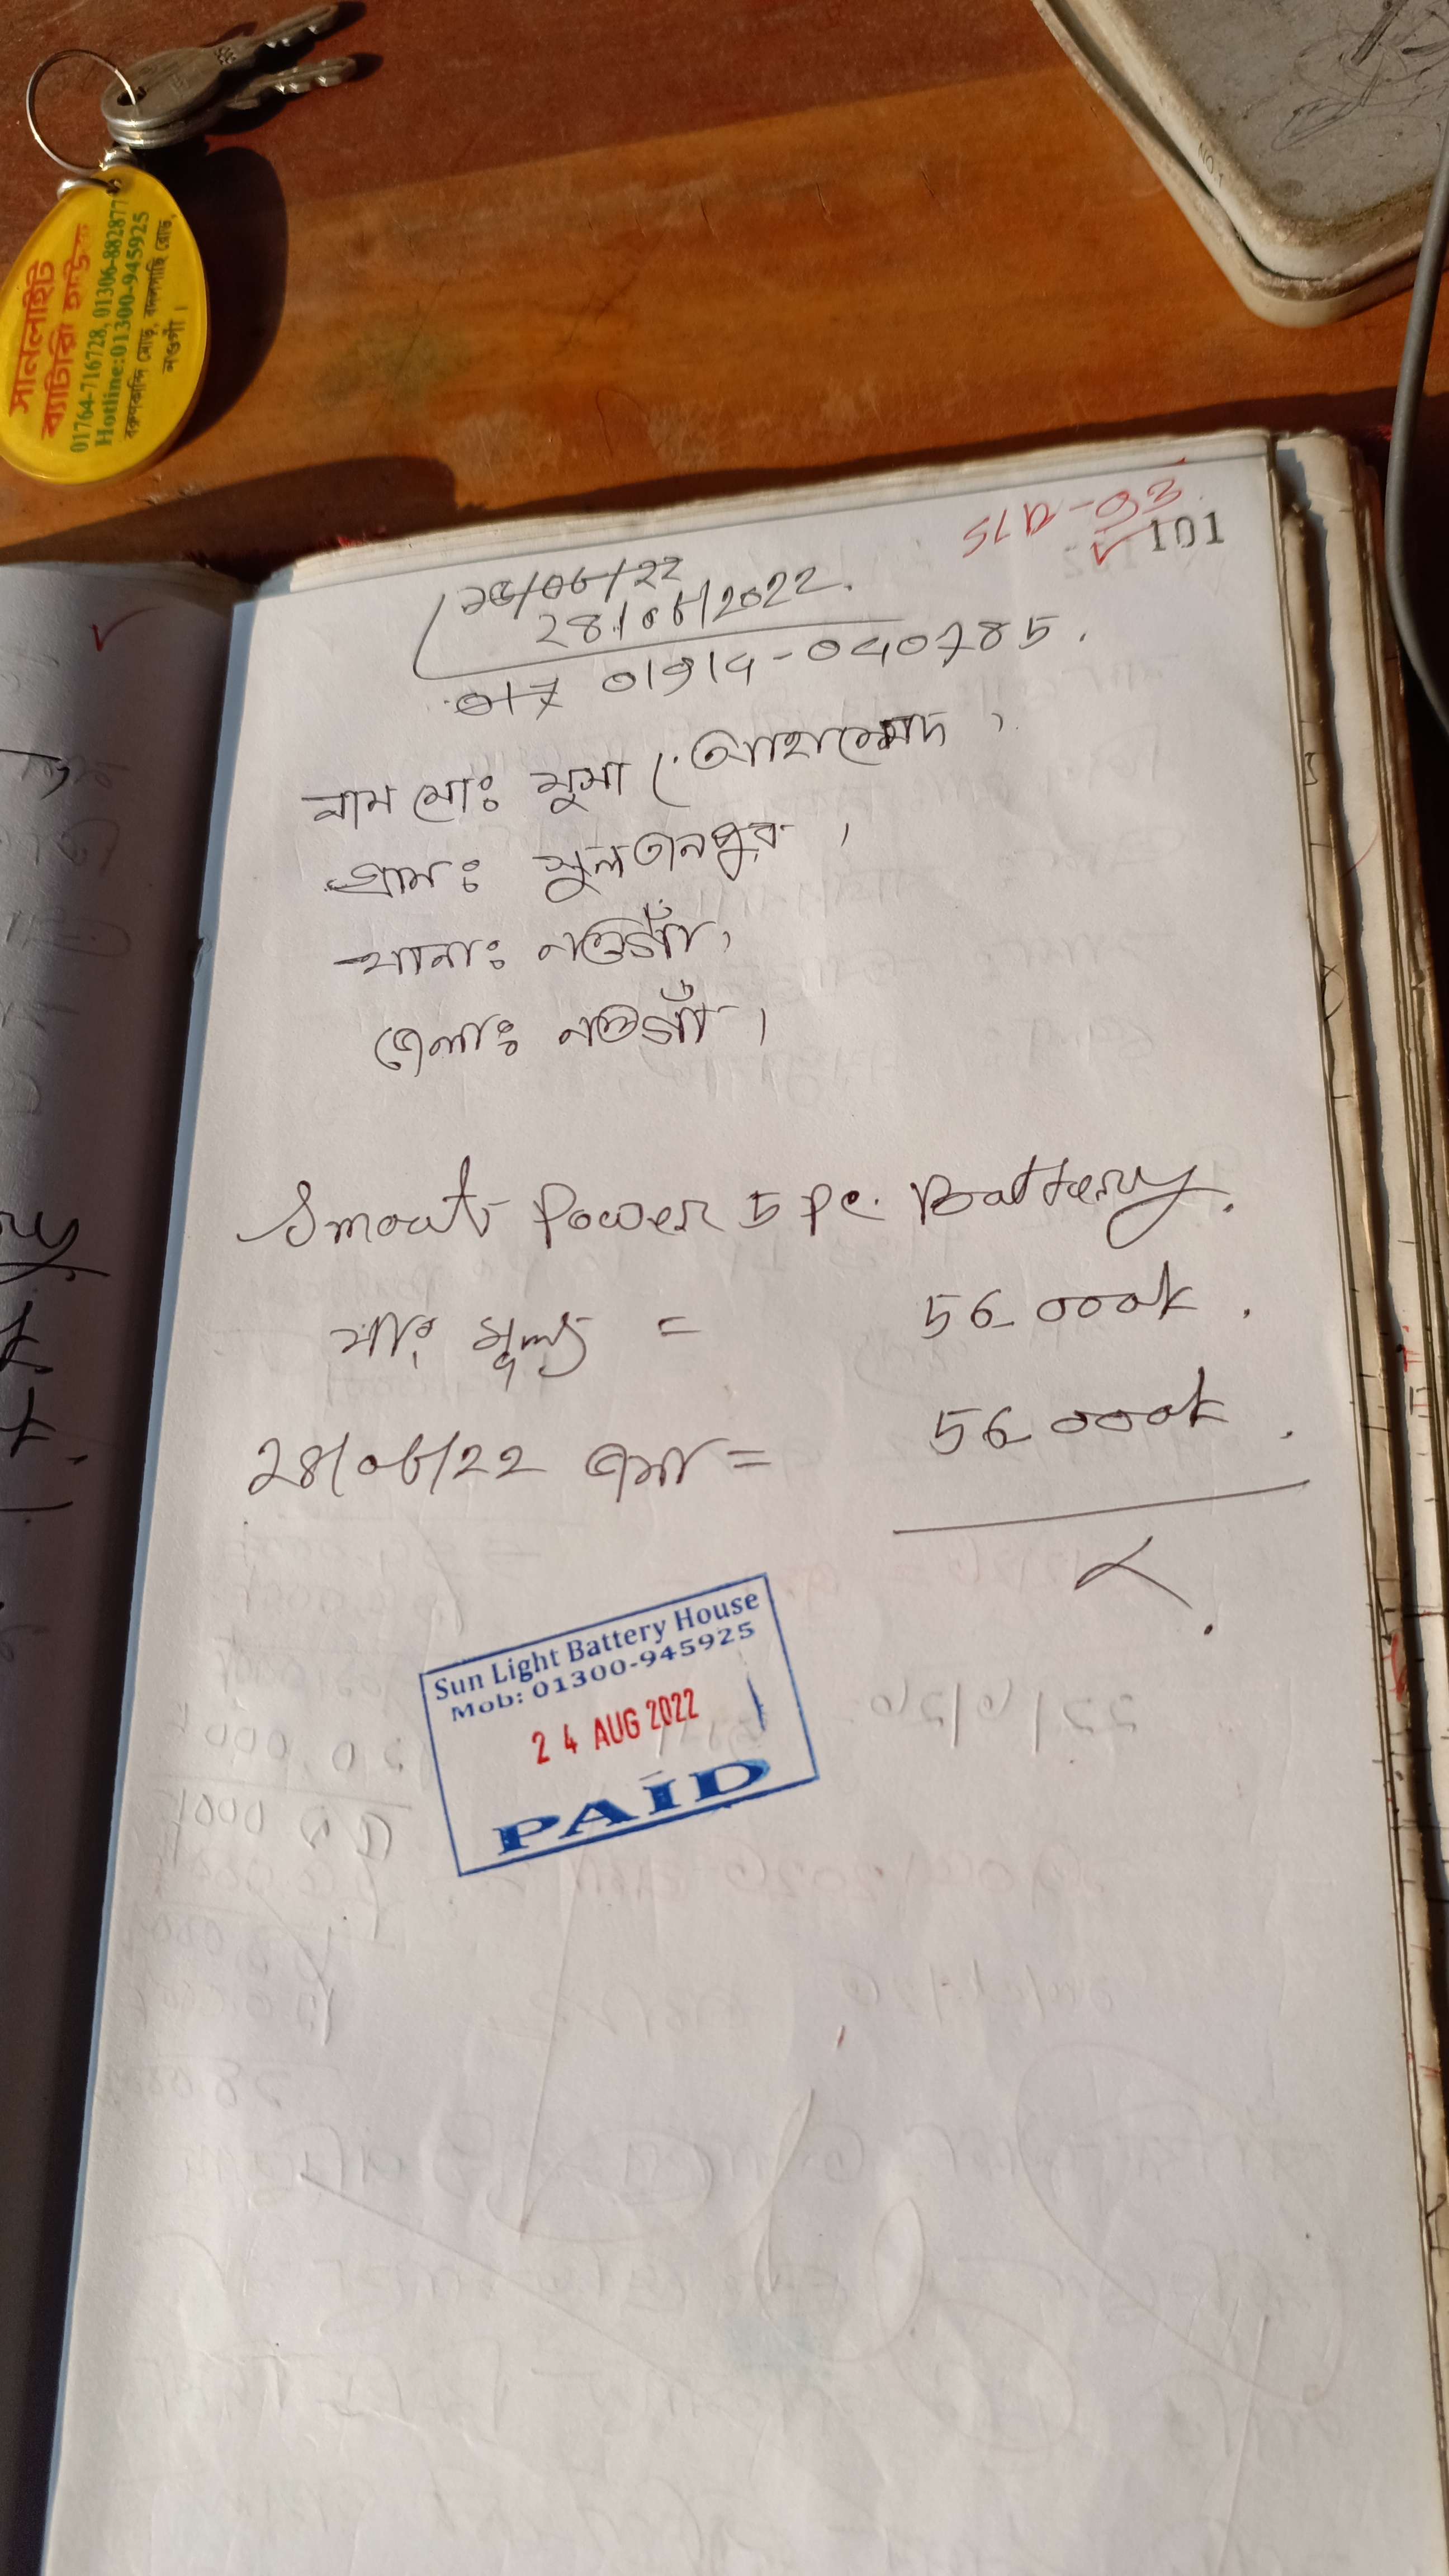 সানলাইট
ব্যাটারি হাউজ
01764-716728, 01306-882877
Hotline:01300-945925
নওগাঁ।
NO.1
SLD-03
101
28/06/2022.
017 01914-040785.
নাম মোঃ মুসা আহাম্মেদ,
গ্রামঃ সুলতানপুর,
থানাঃ নওগাঁ,
জেলাঃ নওগাঁ।
Smart Power 5 pc. Battery.
যার মূল্য = 56000/=
28/06/22 জমা = 56000/=
Sun Light Battery House
Mob: 01300-945925
24 AUG 2022
PAID